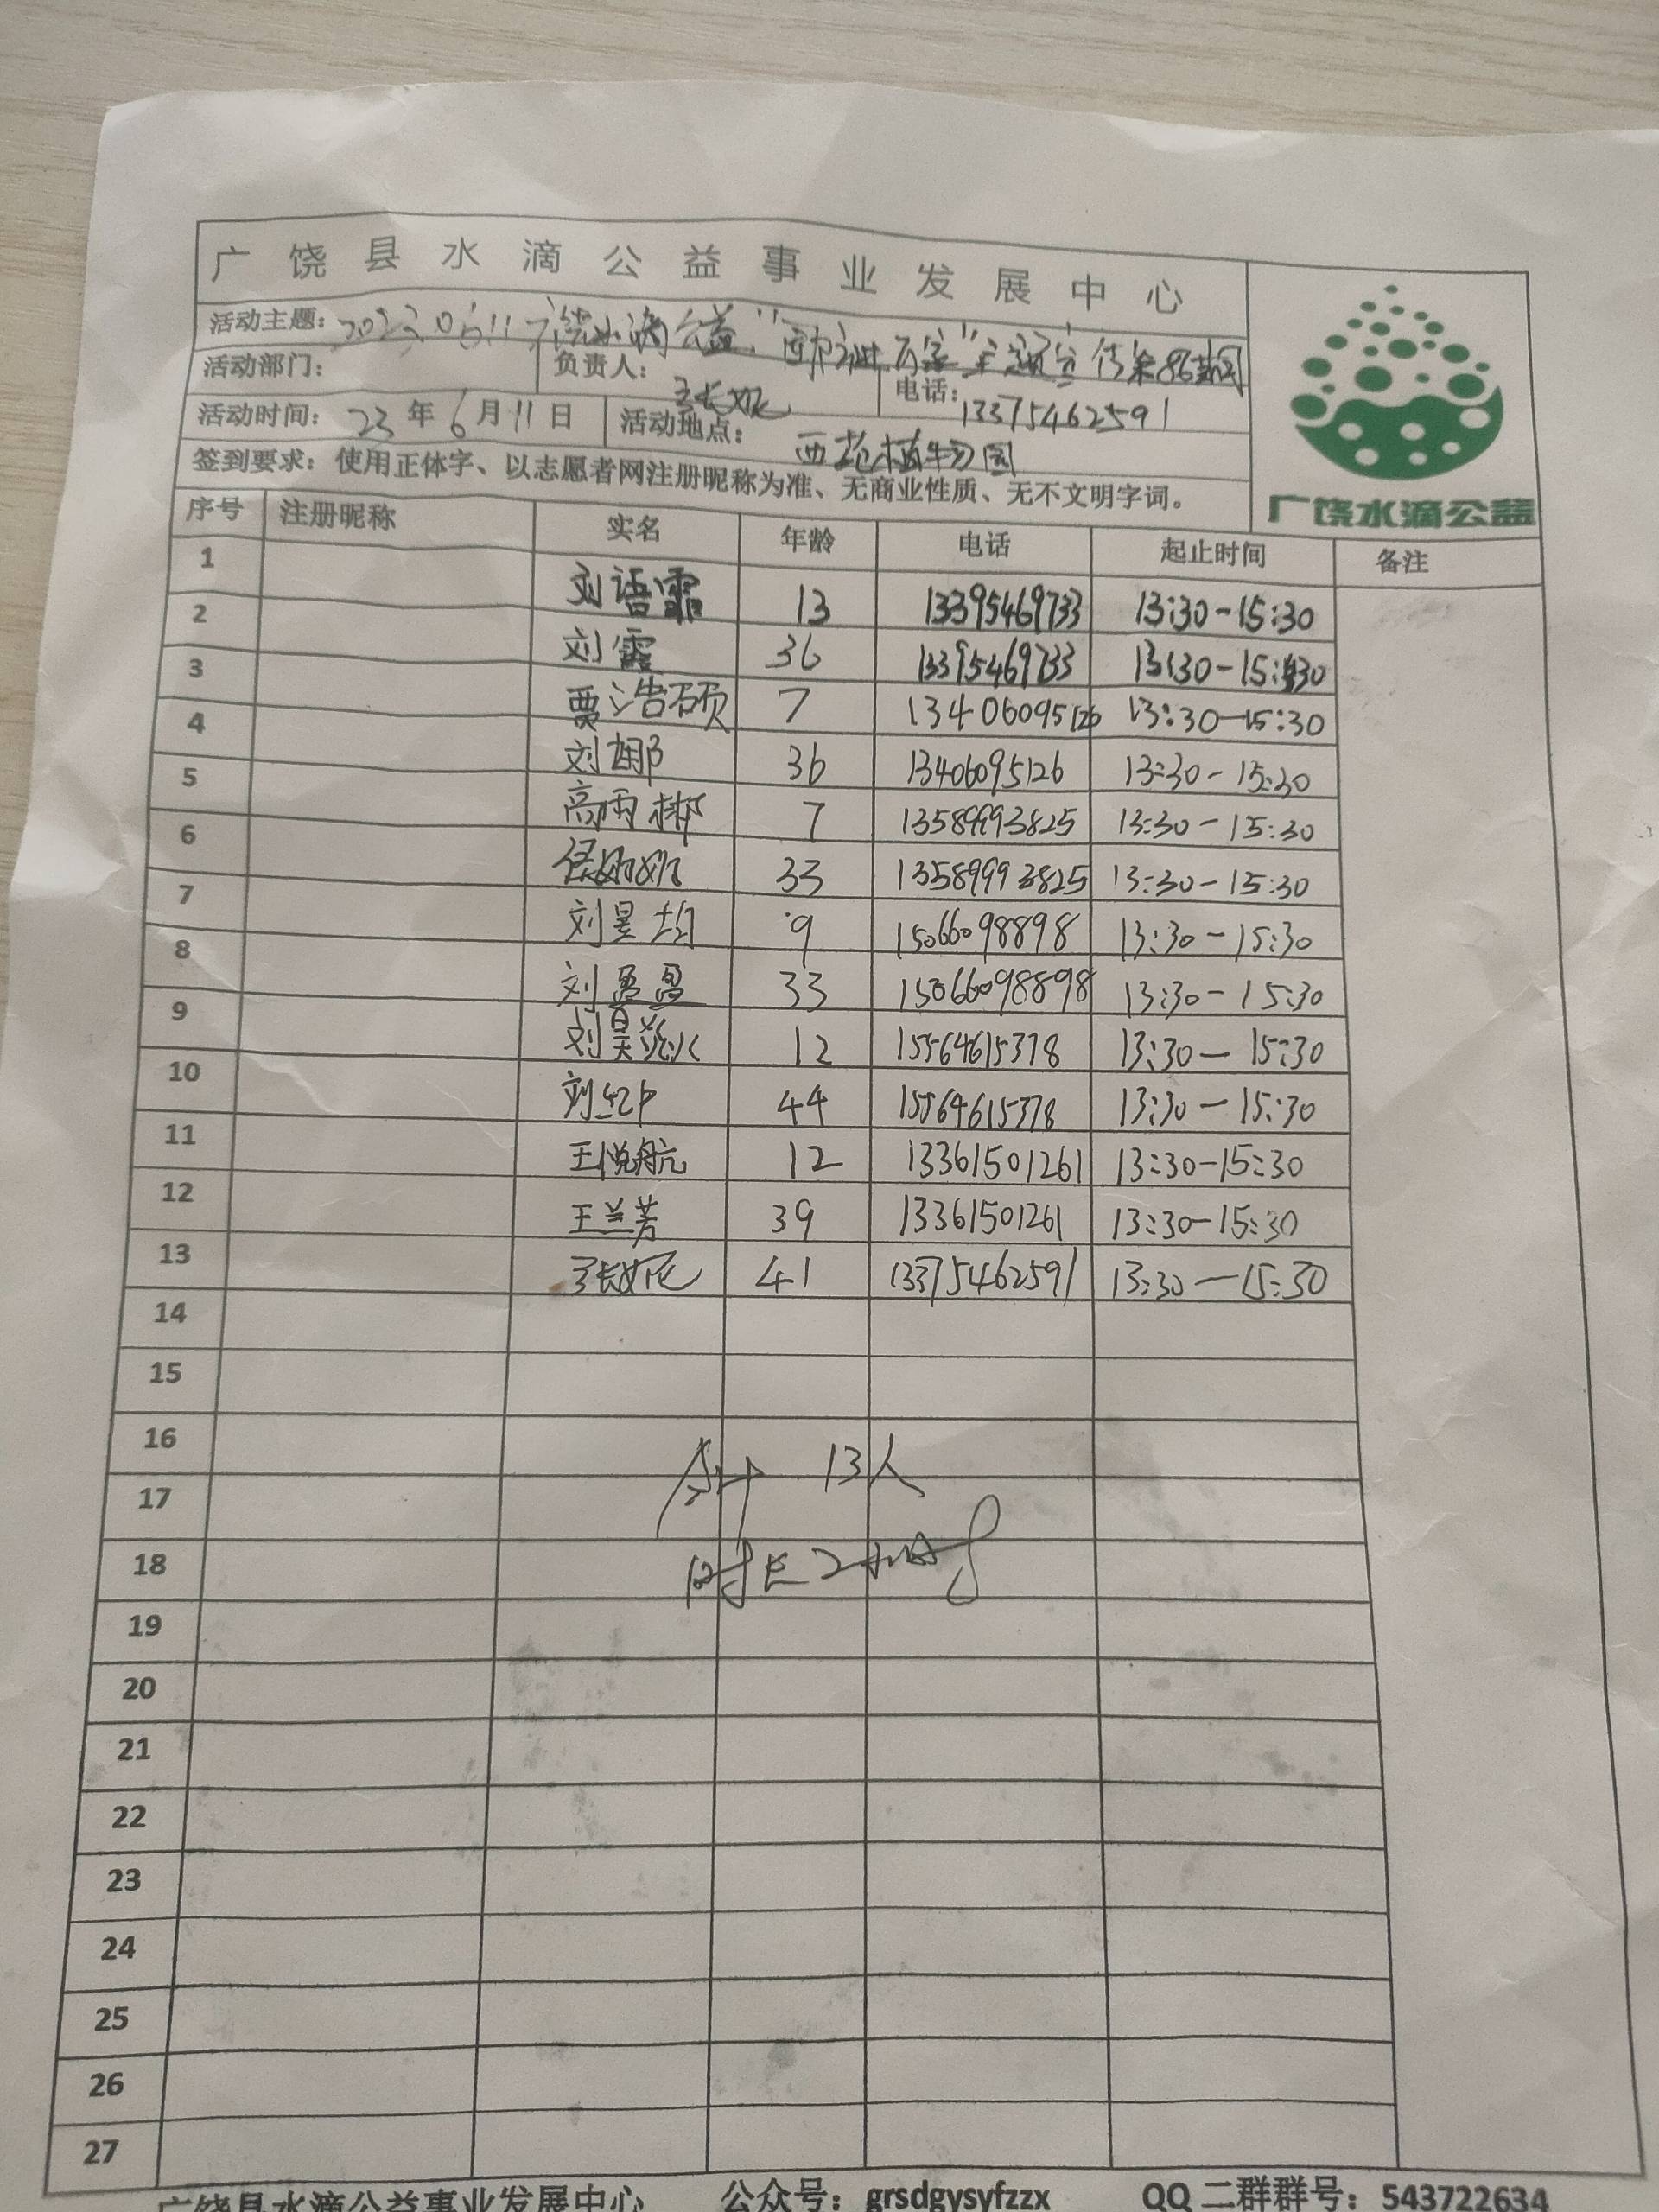 广饶县水滴公益事业发展中心
活动主题：20230611广饶水滴公益
活动部门： 负责人： 电话：13375462591
活动时间：23年6月11日 活动地点：西苑植物园
签到要求：使用正体字、以志愿者网注册昵称为准、无商业性质、无不文明字词。
广饶水滴公益
序号 注册昵称 实名 年龄 电话 起止时间 备注
1 刘语霏 13 13395469733 13:30-15:30
2 刘霞 36 13395469733 13:30-15:30
3 贾浩硕 7 13406095126 13:30-15:30
4 刘娜 36 13406095126 13:30-15:30
5 高雨彬 7 13589993825 13:30-15:30
6 33 13589993825 13:30-15:30
7 刘昱均 9 15066098898 13:30-15:30
8 刘盈盈 33 15066098898 13:30-15:30
9 刘昊 12 15564615378 13:30-15:30
10 刘红中 44 15564615378 13:30-15:30
11 王悦航 12 13361501261 13:30-15:30
12 王兰芳 39 13361501261 13:30-15:30
13 41 13375462591 13:30-15:30
14
15
16
合计 13人
17
18 时长2小时
19
20
21
22
23
24
25
26
27
广饶县水滴公益事业发展中心 公众号：grsdgysyfzzx QQ二群群号：543722634